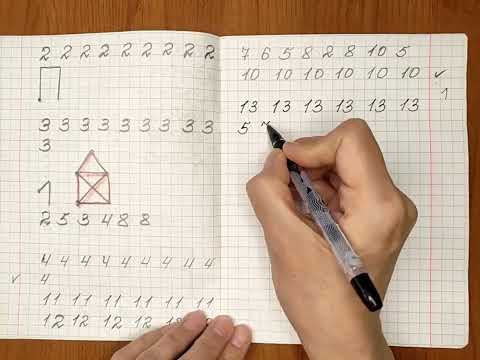 2 2 2 2 2 2 2 2 2
3 3 3 3 3 3 3 3 3
3
1
2 5 3 4 8 8
4 4 4 4 4 4 4 4 4
4
11 11 11 11 11 11
12 12 12 12
7 6 5 8 2 8 10 5
10 10 10 10 10 10 ✓
1
13 13 13 13 13 13
5